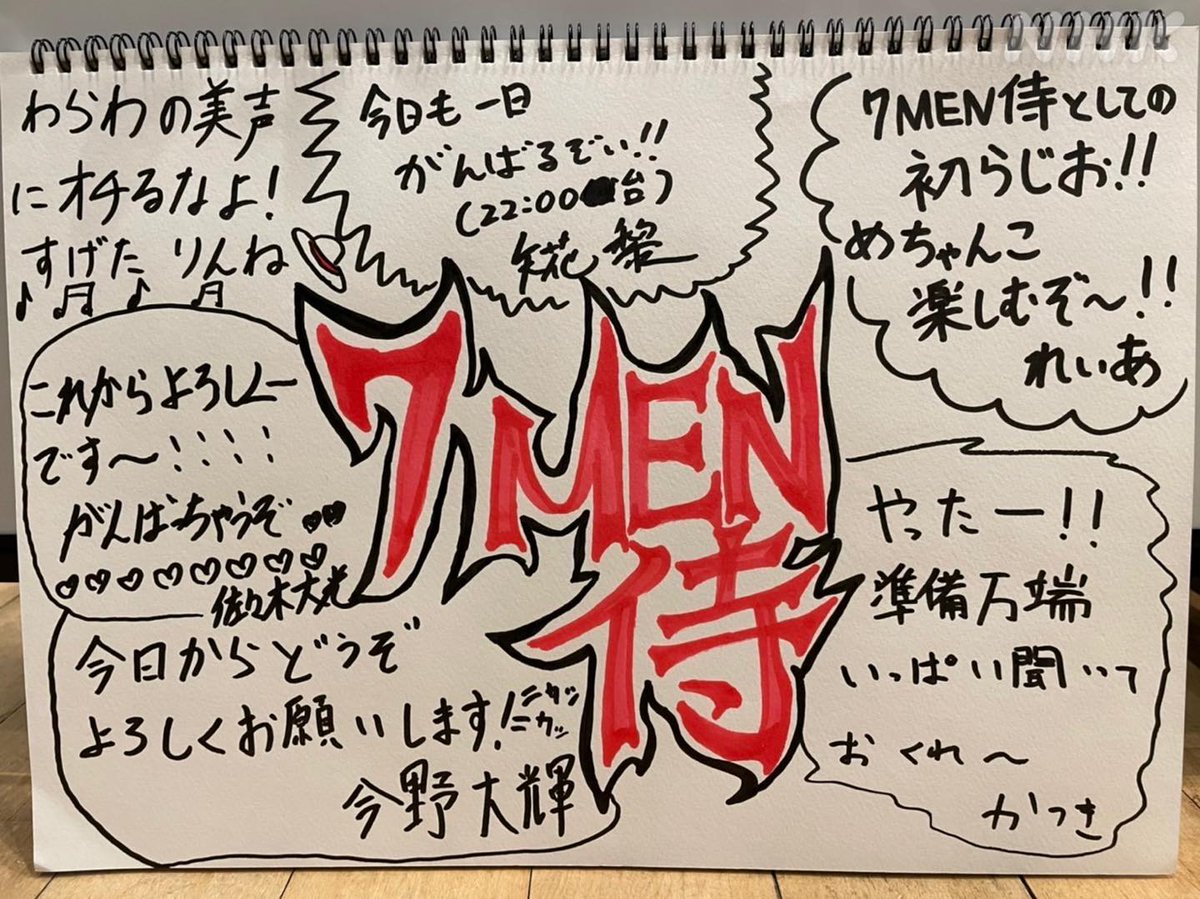 わらわの美声
にオチるなよ!
すげた りんね
今日も一日
がんばるぞい!!
(22:00台)
矢花 黎
7MEN侍としての
初らじお!!
めちゃんこ
楽しむぞ〜!!
れいあ
7MEN
侍
これからよろしくー
です〜!!!!
がんばっちゃうぞ
佐々木大光
今日からどうぞ
よろしくお願いします!ニカッニカッ
今野大輝
やったー!!
準備万端
いっぱい聞いて
おくれ〜
かつき